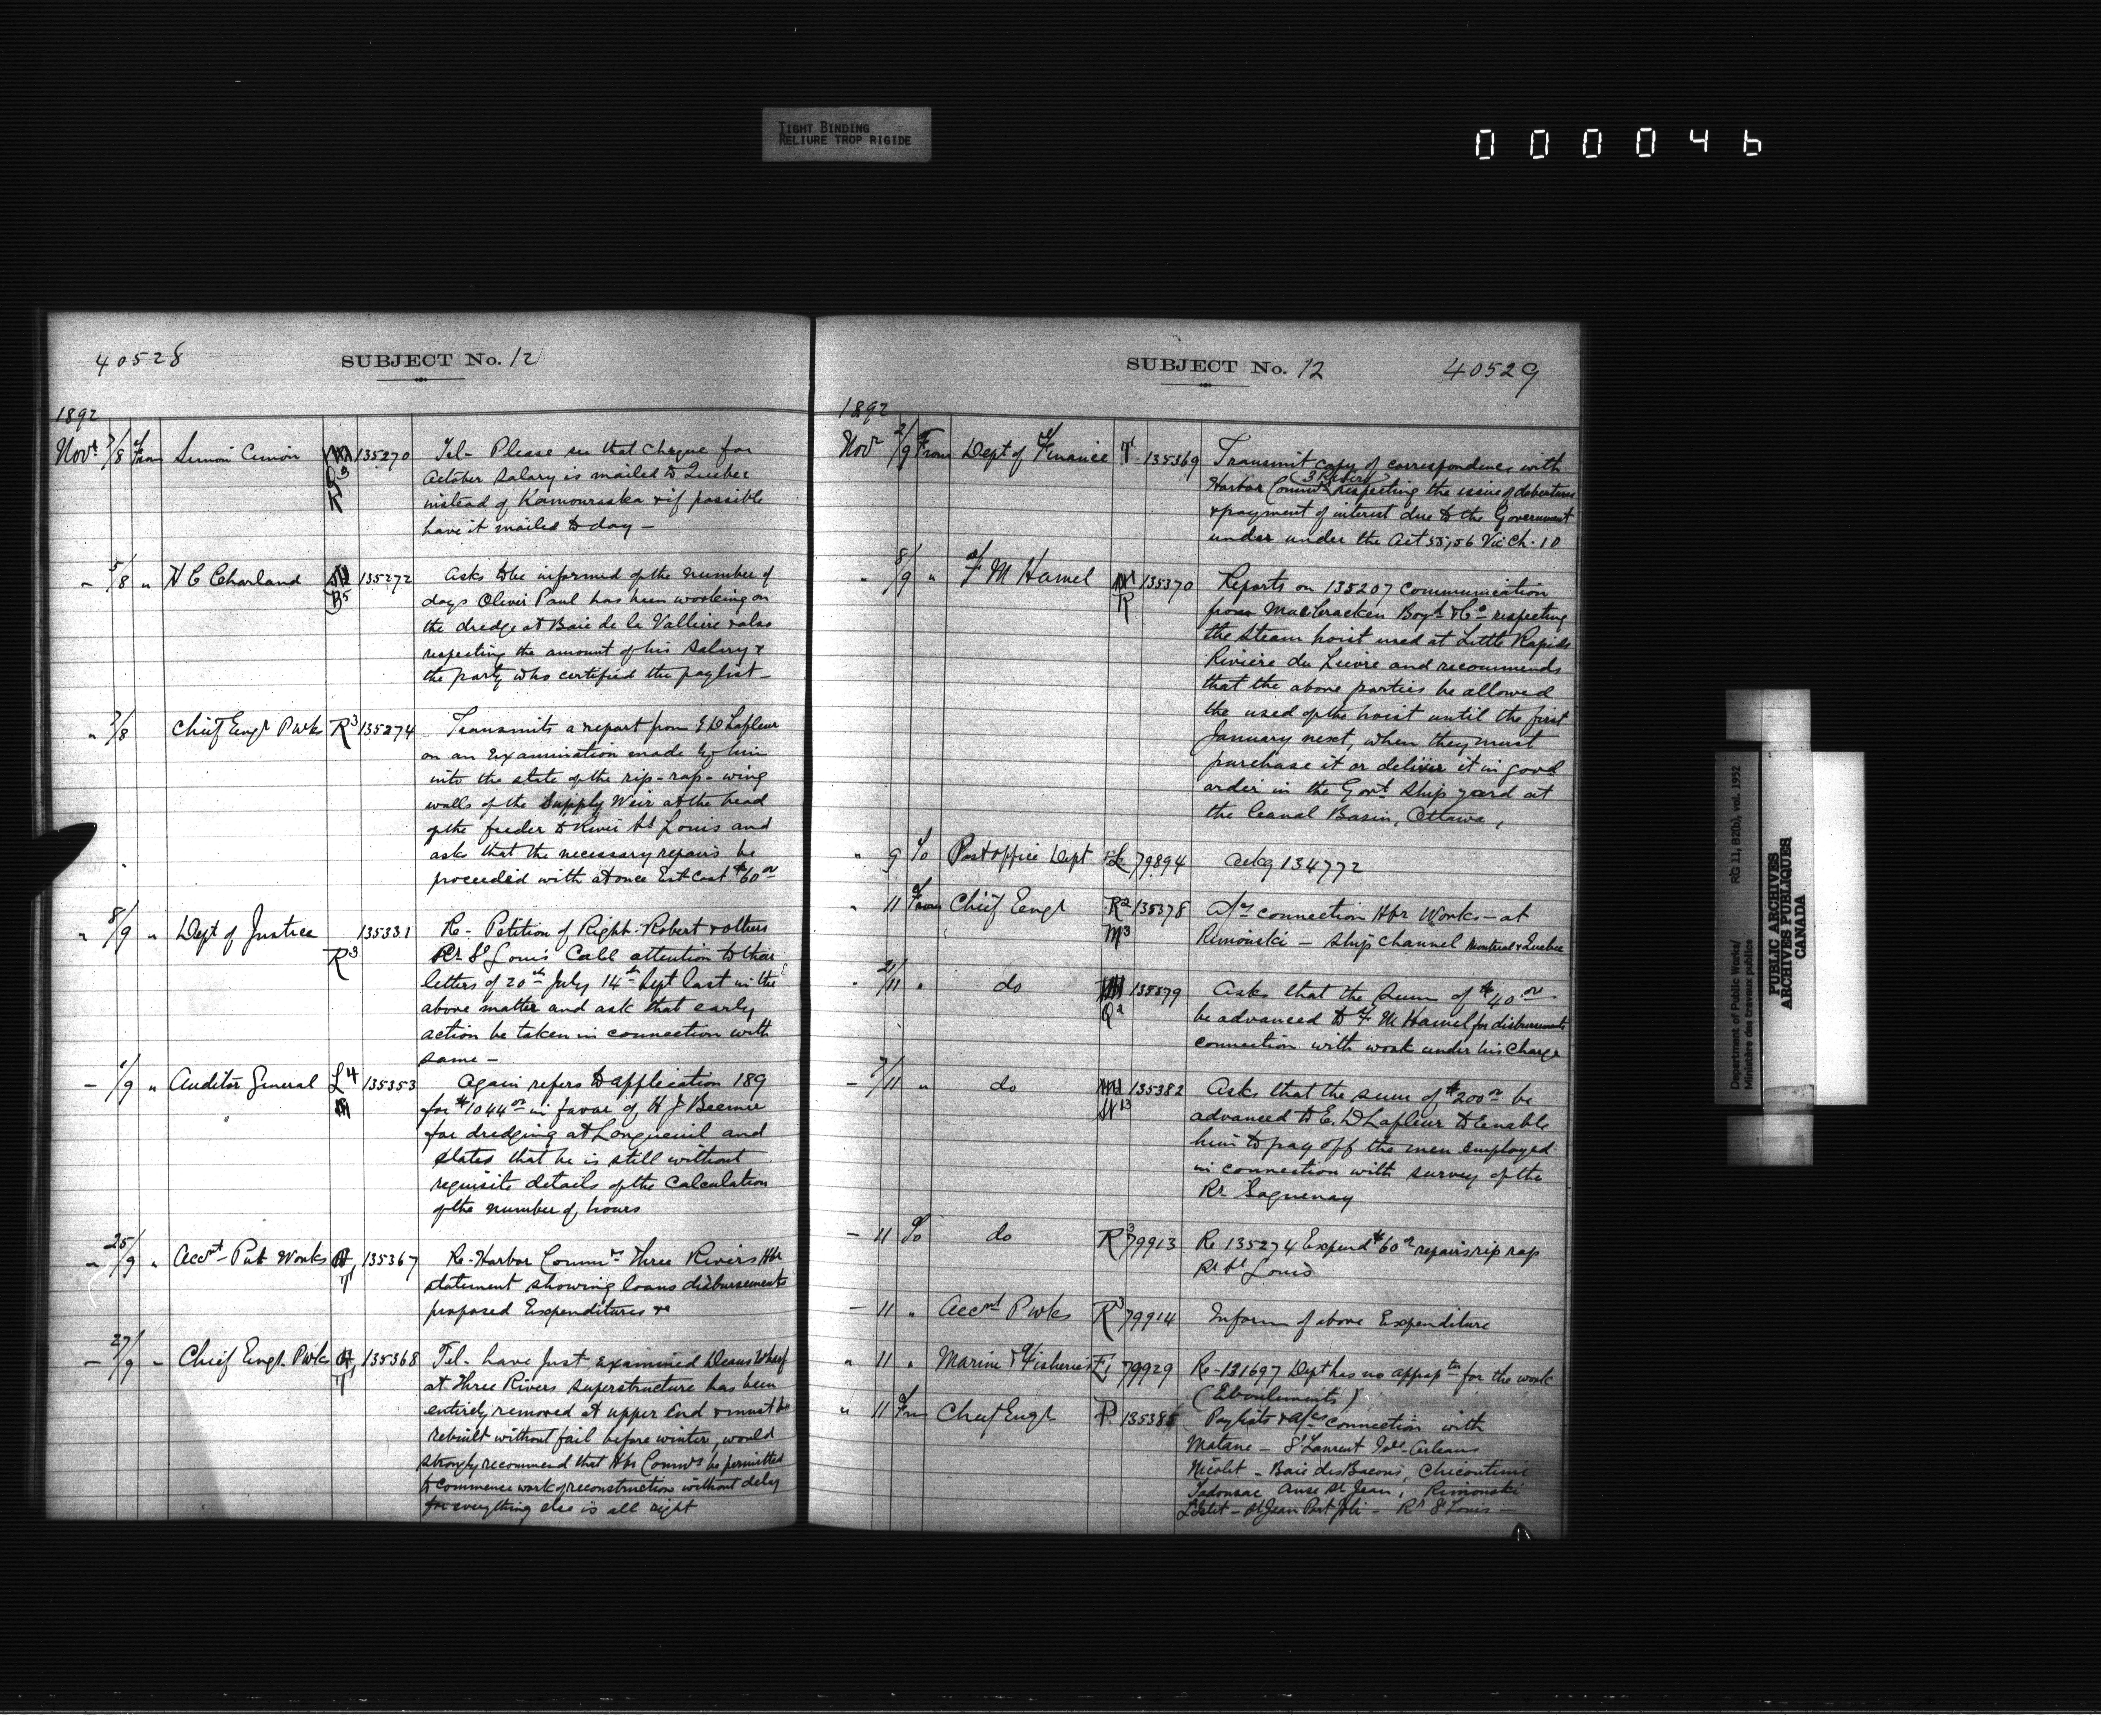 TIGHT BINDING
RELIURE TROP RIGIDE
000046
40528
SUBJECT No. 12
1892
Novr 7/8 From Simon Cimon 135270 Tel- Please see that Cheque for
October Salary is mailed to Quebec
instead of Kamouraska & if possible
have it mailed to day -
" 5/8 " H C Charland B5 135272 Asks to be informed of the number of
days Olivier Paul has been working on
the dredge at Baie de la Valliere & also
respecting the amount of his Salary &
the party who certified the paylist -
" 7/8 Chief Engr Pwks R3 135274 Transmits a report from E D Lafleur
on an Examination made by him
into the state of the rip-rap-wing
walls of the Supply Weir at the head
of the feeder to River St Louis and
asks that the necessary repairs be
proceeded with at once Est Cost $60 00
" 8/9 " Dept of Justice R3 135331 Re- Petition of Right- Robert & others
Rr St Louis Call attention to their
letters of 20th July 14th Sept last in the
above matter and ask that early
action be taken in connection with
same -
- 1/9 " Auditor General L4 135353 Again refers to application 189
for $1044 00 in favor of H J Beemer
for dredging at Longueuil and
states that he is still without
requisite details of the Calculation
of the number of hours
" 25/9 " Accnt Pub Works T1 135367 Re-Harbor Commrs Three Rivers Hbr
statement showing loans disbursements
proposed Expenditures &c
- 27/9 - Chief Engr. Pwks T1 135368 Tel- have Just Examined Deans Wharf
at Three Rivers superstructure has been
entirely removed at upper End & must be
rebuilt without fail before winter, would
strongly recommend that Hbr Commrs be permitted
to Commence work of reconstruction without delay
for everything else is all right
SUBJECT No. 12
40529
1892
Novr 2/9 From Dept of Finance T1 135369 Transmit copy of correspondence with
Harbor Commrs (3 Rivers) respecting the issue of debentures
& payment of interest due to the Government
under under the Act 55,56 Vic Ch. 10
" 8/9 " F M Hamel R 135370 Reports on 135207 Communication
from MacCracken Boyd & Co respecting
the steam hoist used at Little Rapids
Riviere du Lievre and recommends
that the above parties be allowed
the used of the hoist until the first
January next, when they must
purchase it or deliver it in good
order in the Govt Ship yard at
the Canal Basin, Ottawa,
" 9 To Post office Dept 79894 Ackg 134772
" 11 From Chief Engr R2 M3 135378 A/cs connection Hbr Works - at
Rimouski - Ship Channel Montreal & Quebec
" 21/11 " do Q2 135379 Asks that the Sum of $40 00
be advanced to F M Hamel for disbursements
connection with work under his Charge
- 7/11 " do 135382 Asks that the sum of $200 00 be
advanced to E. D Lafleur to Enable
him to pay off the men employed
in connection with survey of the
Rr Saguenay
- 11 To do R3 79913 Re 135274 Expend $60 00 repairs rip rap
Rr St Louis
- 11 " Accnt Pwks R3 79914 Inform of above Expenditure
" 11 " Marine & Fisheries E1 79929 Re-131697 Dept has no apprptn for the work
(Eboulements)
" 11 From Chief Engr P 135385 Paylists & a/cs connection with
Matane - St Laurent Isle Orleans
Nicolet - Baie des Bacons, Chicoutimi
Tadousac Anse St Jean, Rimouski
L'Islet - St Jean Port Joli - Rr St Louis -
Department of Public Works/
Ministère des travaux publics
RG 11, B2(b), vol. 1952
PUBLIC ARCHIVES
ARCHIVES PUBLIQUES
CANADA